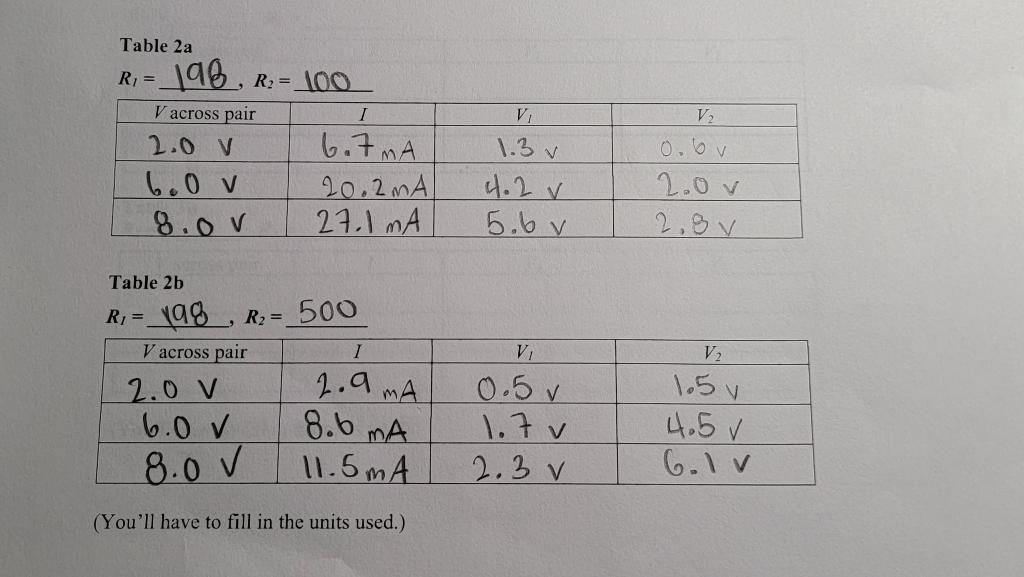 Table 2a
R₁ = 198, R₂ = 100
V across pair I V₁ V₂
2.0 V 6.7 mA 1.3 V 0.6 V
6.0 V 20.2 mA 4.2 V 2.0 V
8.0 V 27.1 mA 5.6 V 2.8 V
Table 2b
R₁ = 198, R₂ = 500
V across pair I V₁ V₂
2.0 V 2.9 mA 0.5 V 1.5 V
6.0 V 8.6 mA 1.7 V 4.5 V
8.0 V 11.5 mA 2.3 V 6.1 V
(You'll have to fill in the units used.)